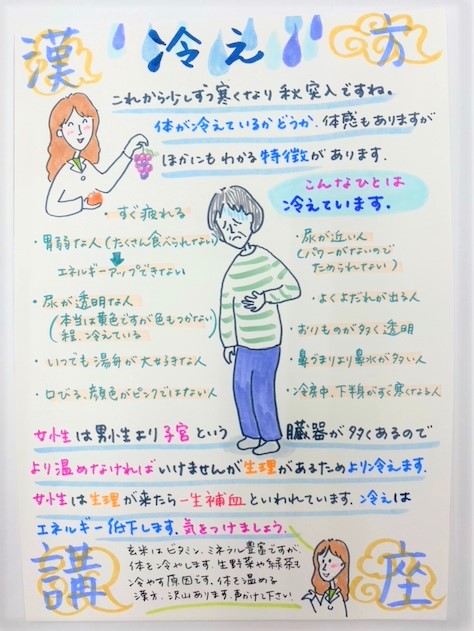 漢 冷え 方
これから少しずつ寒くなり秋突入ですね。
体が冷えているかどうか、体感もありますが
ほかにもわかる特徴があります。
こんなひとは
冷えています。
・すぐ疲れる
・胃弱な人(たくさん食べられない)
エネルギーアップできない
・尿が透明な人
(本当は黄色ですが色もつかない
程、冷えている)
・いつでも湯舟が大好きな人
・口びる、顔色がピンクではない人
・尿が近い人
(パワーがないので
ためられない)
・よくよだれが出る人
・おりものが多く透明
・鼻づまりより鼻水が多い人
・冷房中、下半身がすぐ寒くなる人
女性は男性より子宮という臓器が多くあるので
より温めなければいけませんが生理があるためより冷えます。
女性は生理が来たら一生補血といわれています。冷えは
エネルギー低下します。気をつけましょう。
玄米はビタミン、ミネラル豊富ですが、
体を冷やします。生野菜や緑茶も
冷やす原因です。体を温める
漢方、沢山あります。声かけて下さい
講 座